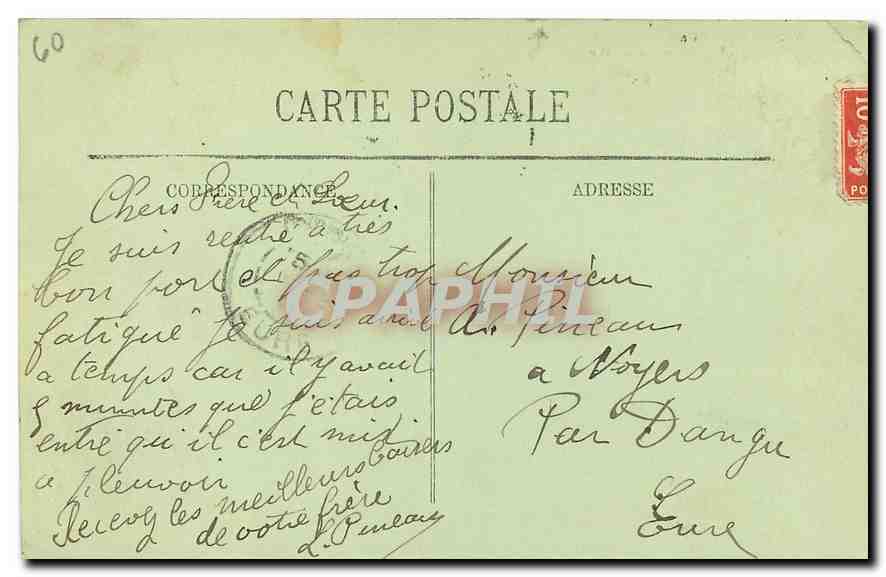 60
CARTE POSTALE
CORRESPONDANCE
ADRESSE
Chers Frère et Sœur.
Je suis rentré à très
bon port et pas trop
fatigué Je suis arrivé
a temps car il y avait
5 minutes que j'etais
entré qu'il c'est mis
a pleuvoir
Recevez les meilleurs baisers
de votre frère
L. Pineau
Monsieur
A. Pineau
a Noyers
Par Dangu
Eure
CPAPHIL
5
EURE
10
PO